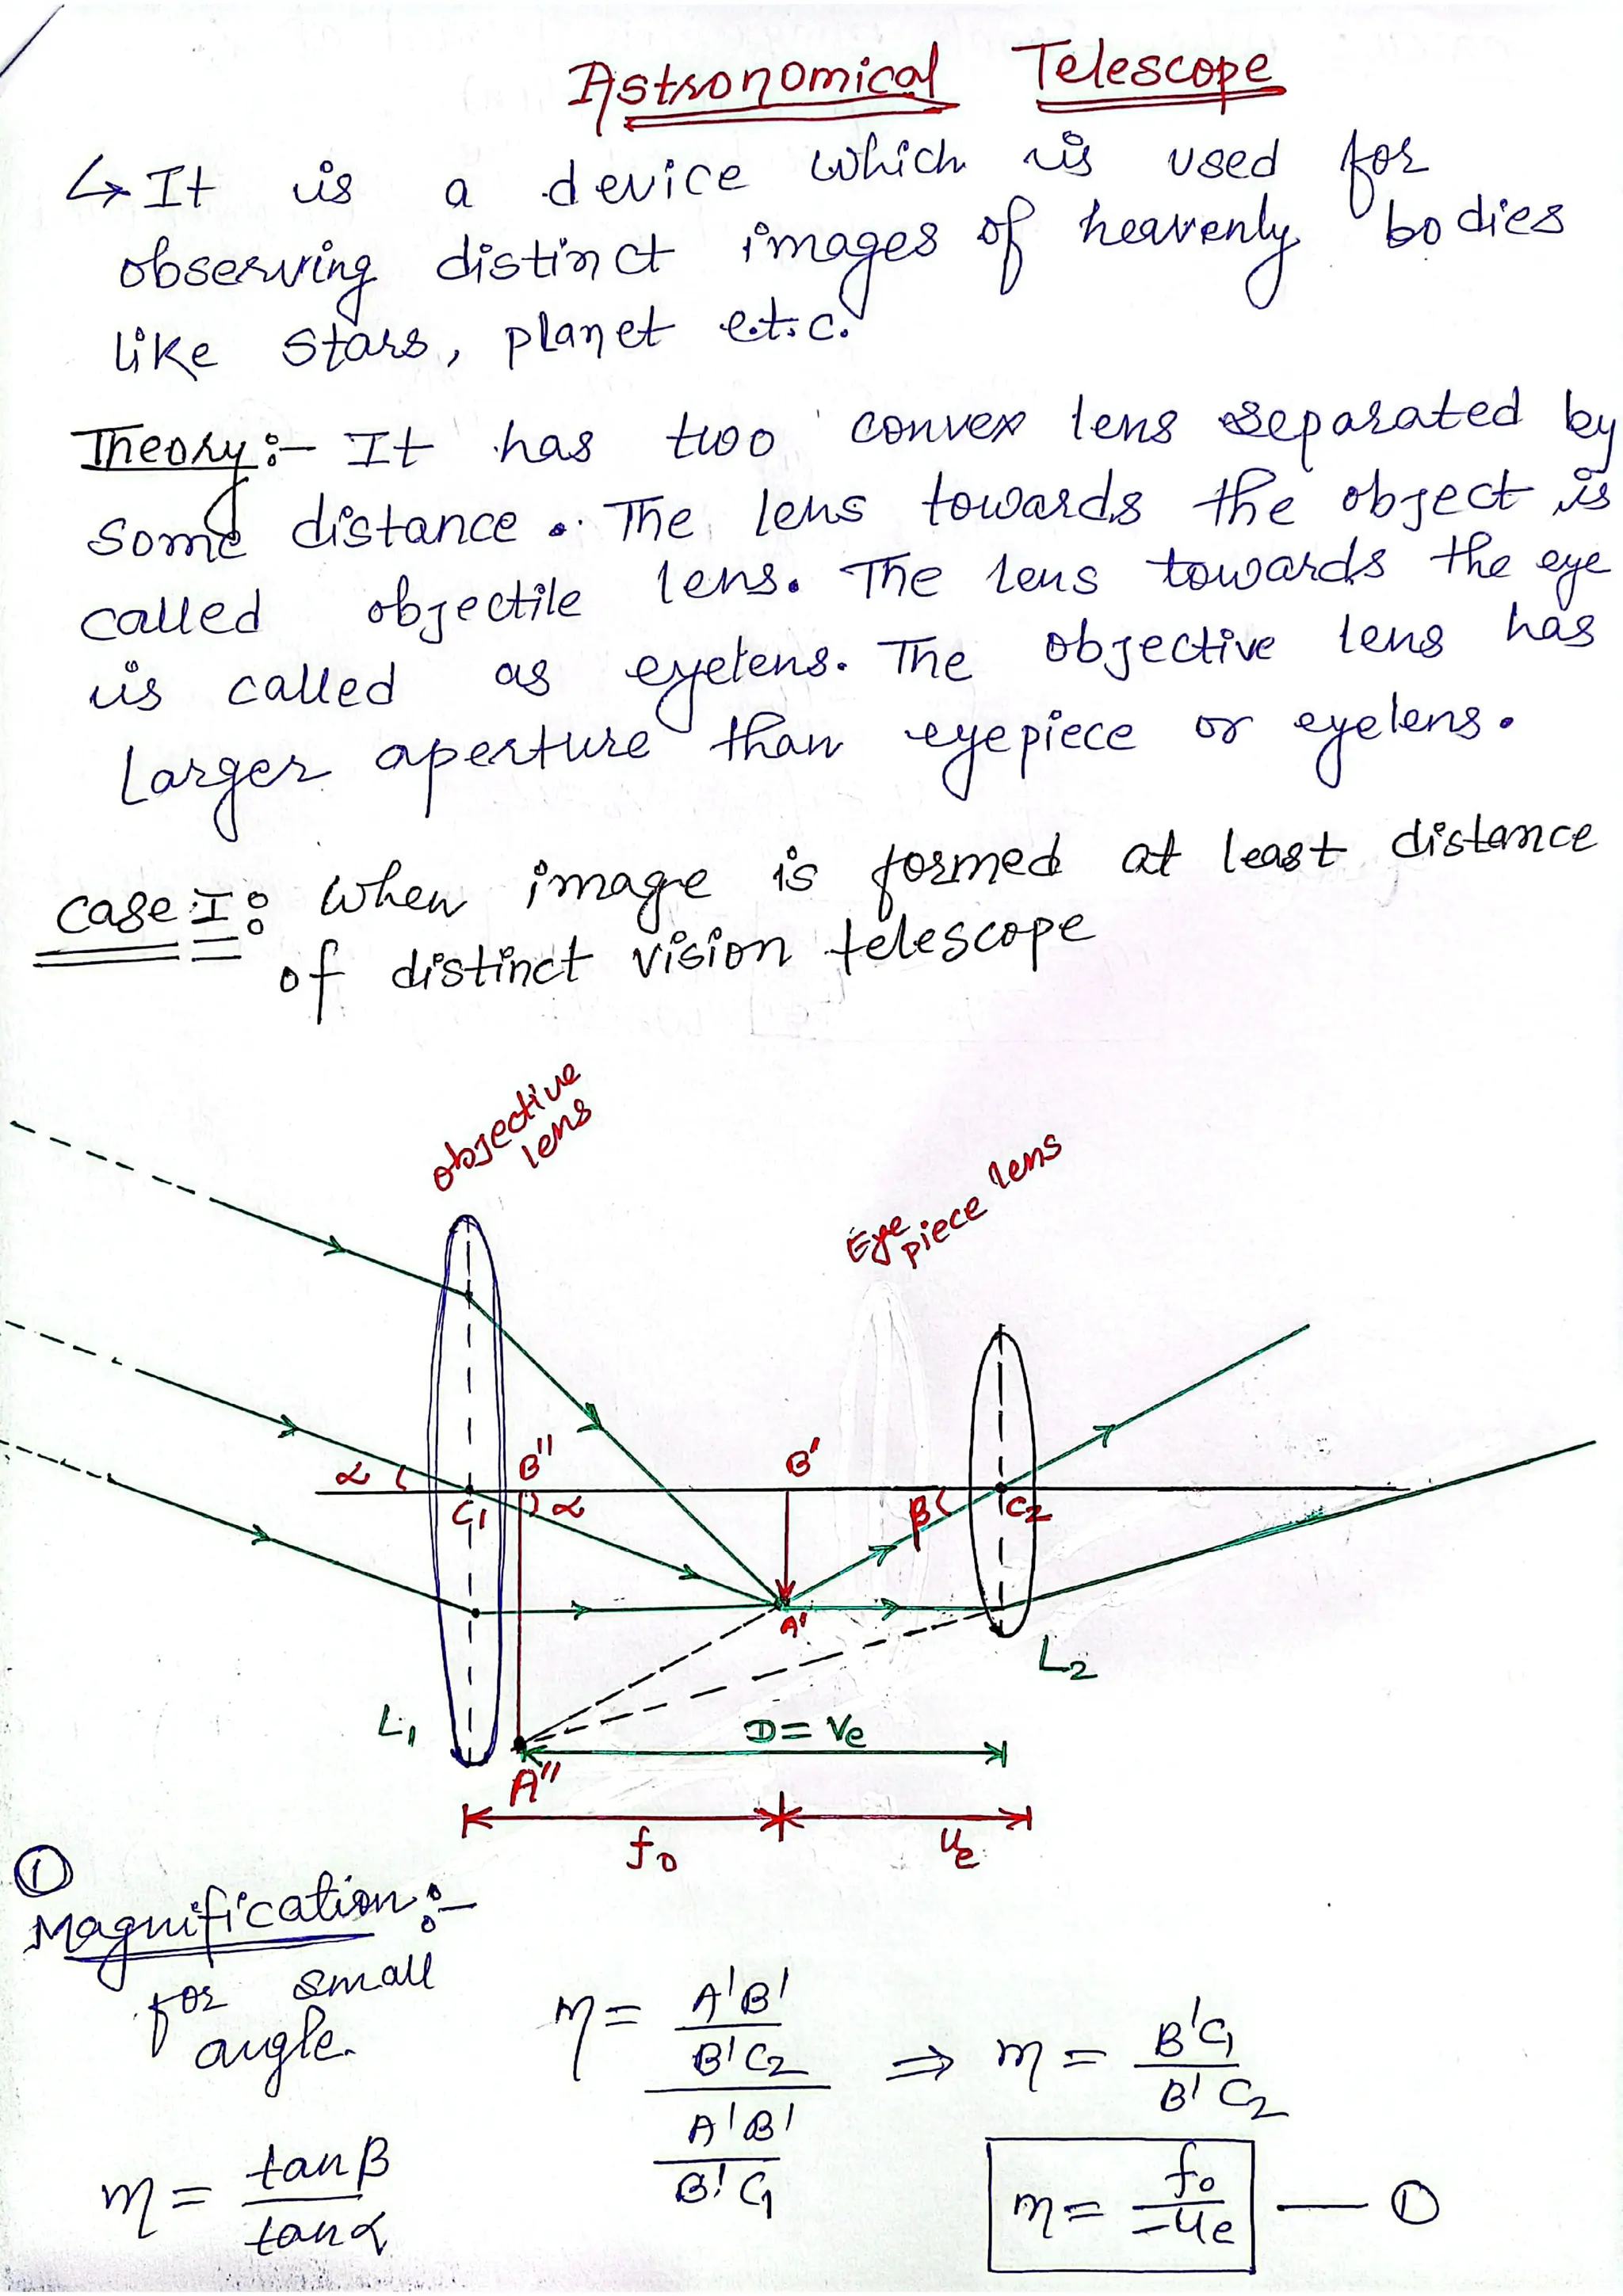 Astronomical Telescope
↳ It is a device which is used for
observing distinct images of heavenly bodies
like stars, planet e.t.c.
Theory:- It has two convex lens separated by
some distance. The lens towards the object is
called objectile lens. The lens towards the eye
is called as eyelens. The objective lens has
Larger aperture than eyepiece or eyelens.
Case I: When image is formed at least distance
of distinct vision telescope
objective
lens
Eye piece lens
α
C₁
B''
α
B'
β
C₂
A'
L₂
L₁
D = Ve
A''
fo
ue
①
Magnification:-
for small
angle.
m = tanβ / tanα
m = (A'B' / B'C₂) / (A'B' / B'C₁)
⇒ m = B'C₁ / B'C₂
m = fo / -ue — ①